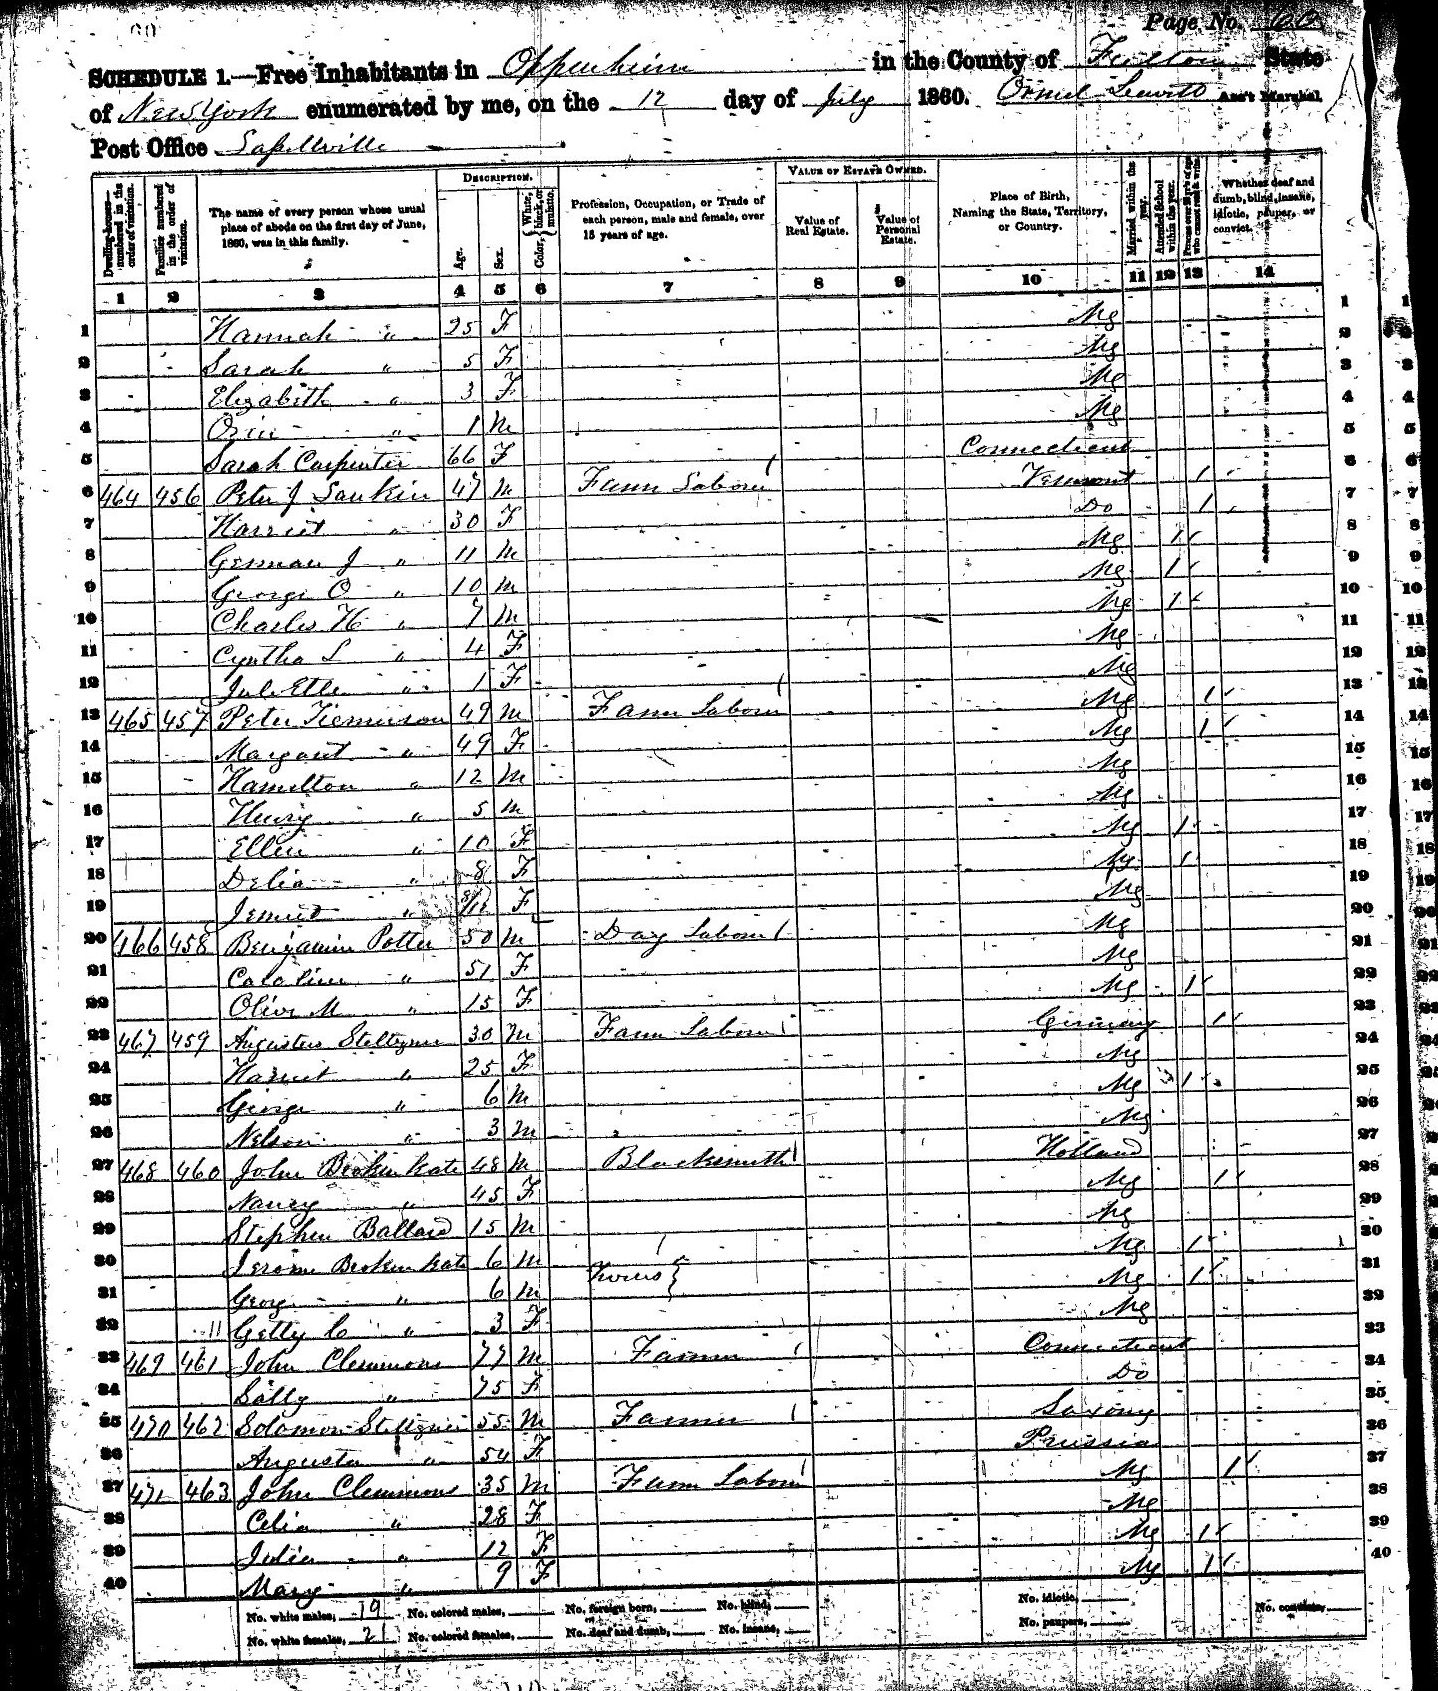 Page No. 60
SCHEDULE 1.—Free Inhabitants in Oppenheim in the County of Fulton State
of New York enumerated by me, on the 12 day of July 1860. Ass't Marshal.
Post Office
Dwelling-houses—numbered in the order of visitation.
Families numbered in the order of visitation.
The name of every person whose usual place of abode on the first day of June, 1860, was in this family.
DESCRIPTION.
Age.
Sex.
Color, White, black, or mulatto.
Profession, Occupation, or Trade of each person, male and female, over 15 years of age.
VALUE OF ESTATE OWNED.
Value of Real Estate.
Value of Personal Estate.
Place of Birth, Naming the State, Territory, or Country.
Married within the year.
Attended School within the year.
Persons over 20 y'rs of age who cannot read & write.
Whether deaf and dumb, blind, insane, idiotic, pauper, or convict.
1 2 3 4 5 6 7 8 9 10 11 12 13 14
1 Hannah " 25 F Ny 1
2 Sarah " 5 F Ny 2
3 Elizabeth " 3 F Ny 3
4 " 1 M Ny 4
5 Sarah Carpenter 66 F Connecticut 5
6 464 456 Peter J 47 M Farm Laborer Vermont 1 6
7 Harriet " 30 F Do 1 7
8 German J " 11 M Ny 1 8
9 George O " 10 M Ny 1 9
10 Charles H " 7 M Ny 1 10
11 Cyntha L " 4 F Ny 11
12 " 1 F Ny 12
13 465 457 Peter 49 M Farm Laborer Ny 1 13
14 Margaret " 49 F Ny 1 14
15 Hamilton " 12 M Ny 15
16 Henry " 5 M Ny 16
17 Ellen " 10 F Ny 1 17
18 Delia " 8 F Ny 1 18
19 " F Ny 19
20 466 458 Benjamin Potter 50 M Day Laborer Ny 20
21 Caroline " 51 F Ny 21
22 Olive M " 15 F Ny 1 22
23 467 459 Augustus 30 M Farm Laborer Germany 1 23
24 Harriet " 25 F Ny 24
25 George " 6 M Ny 1 25
26 Nelson " 3 M Ny 26
27 468 460 John 48 M Blacksmith Holland 27
28 Nancy " 45 F Ny 1 28
29 Stephen Ballard 15 M Ny 29
30 Jerome 6 M Twins Ny 1 30
31 Georg " 6 M Ny 1 31
32 Getty C " 3 F Ny 32
33 469 461 John Clemmons 77 M Farmer Connecticut 33
34 Sally " 75 F Do 34
35 470 462 Solomon 55 M Farmer Saxony 35
36 Augusta " 54 F Prussia 36
37 471 463 John Clemmons 35 M Farm Labour Ny 1 37
38 Celia " 28 F Ny 38
39 Julia " 12 F Ny 1 39
40 Mary " 9 F Ny 1 40
No. white males, 19 No. colored males, No. foreign born, No. blind, No. idiotic, No. convicts,
No. white females, 21 No. colored females, No. deaf and dumb, No. insane, No. paupers,